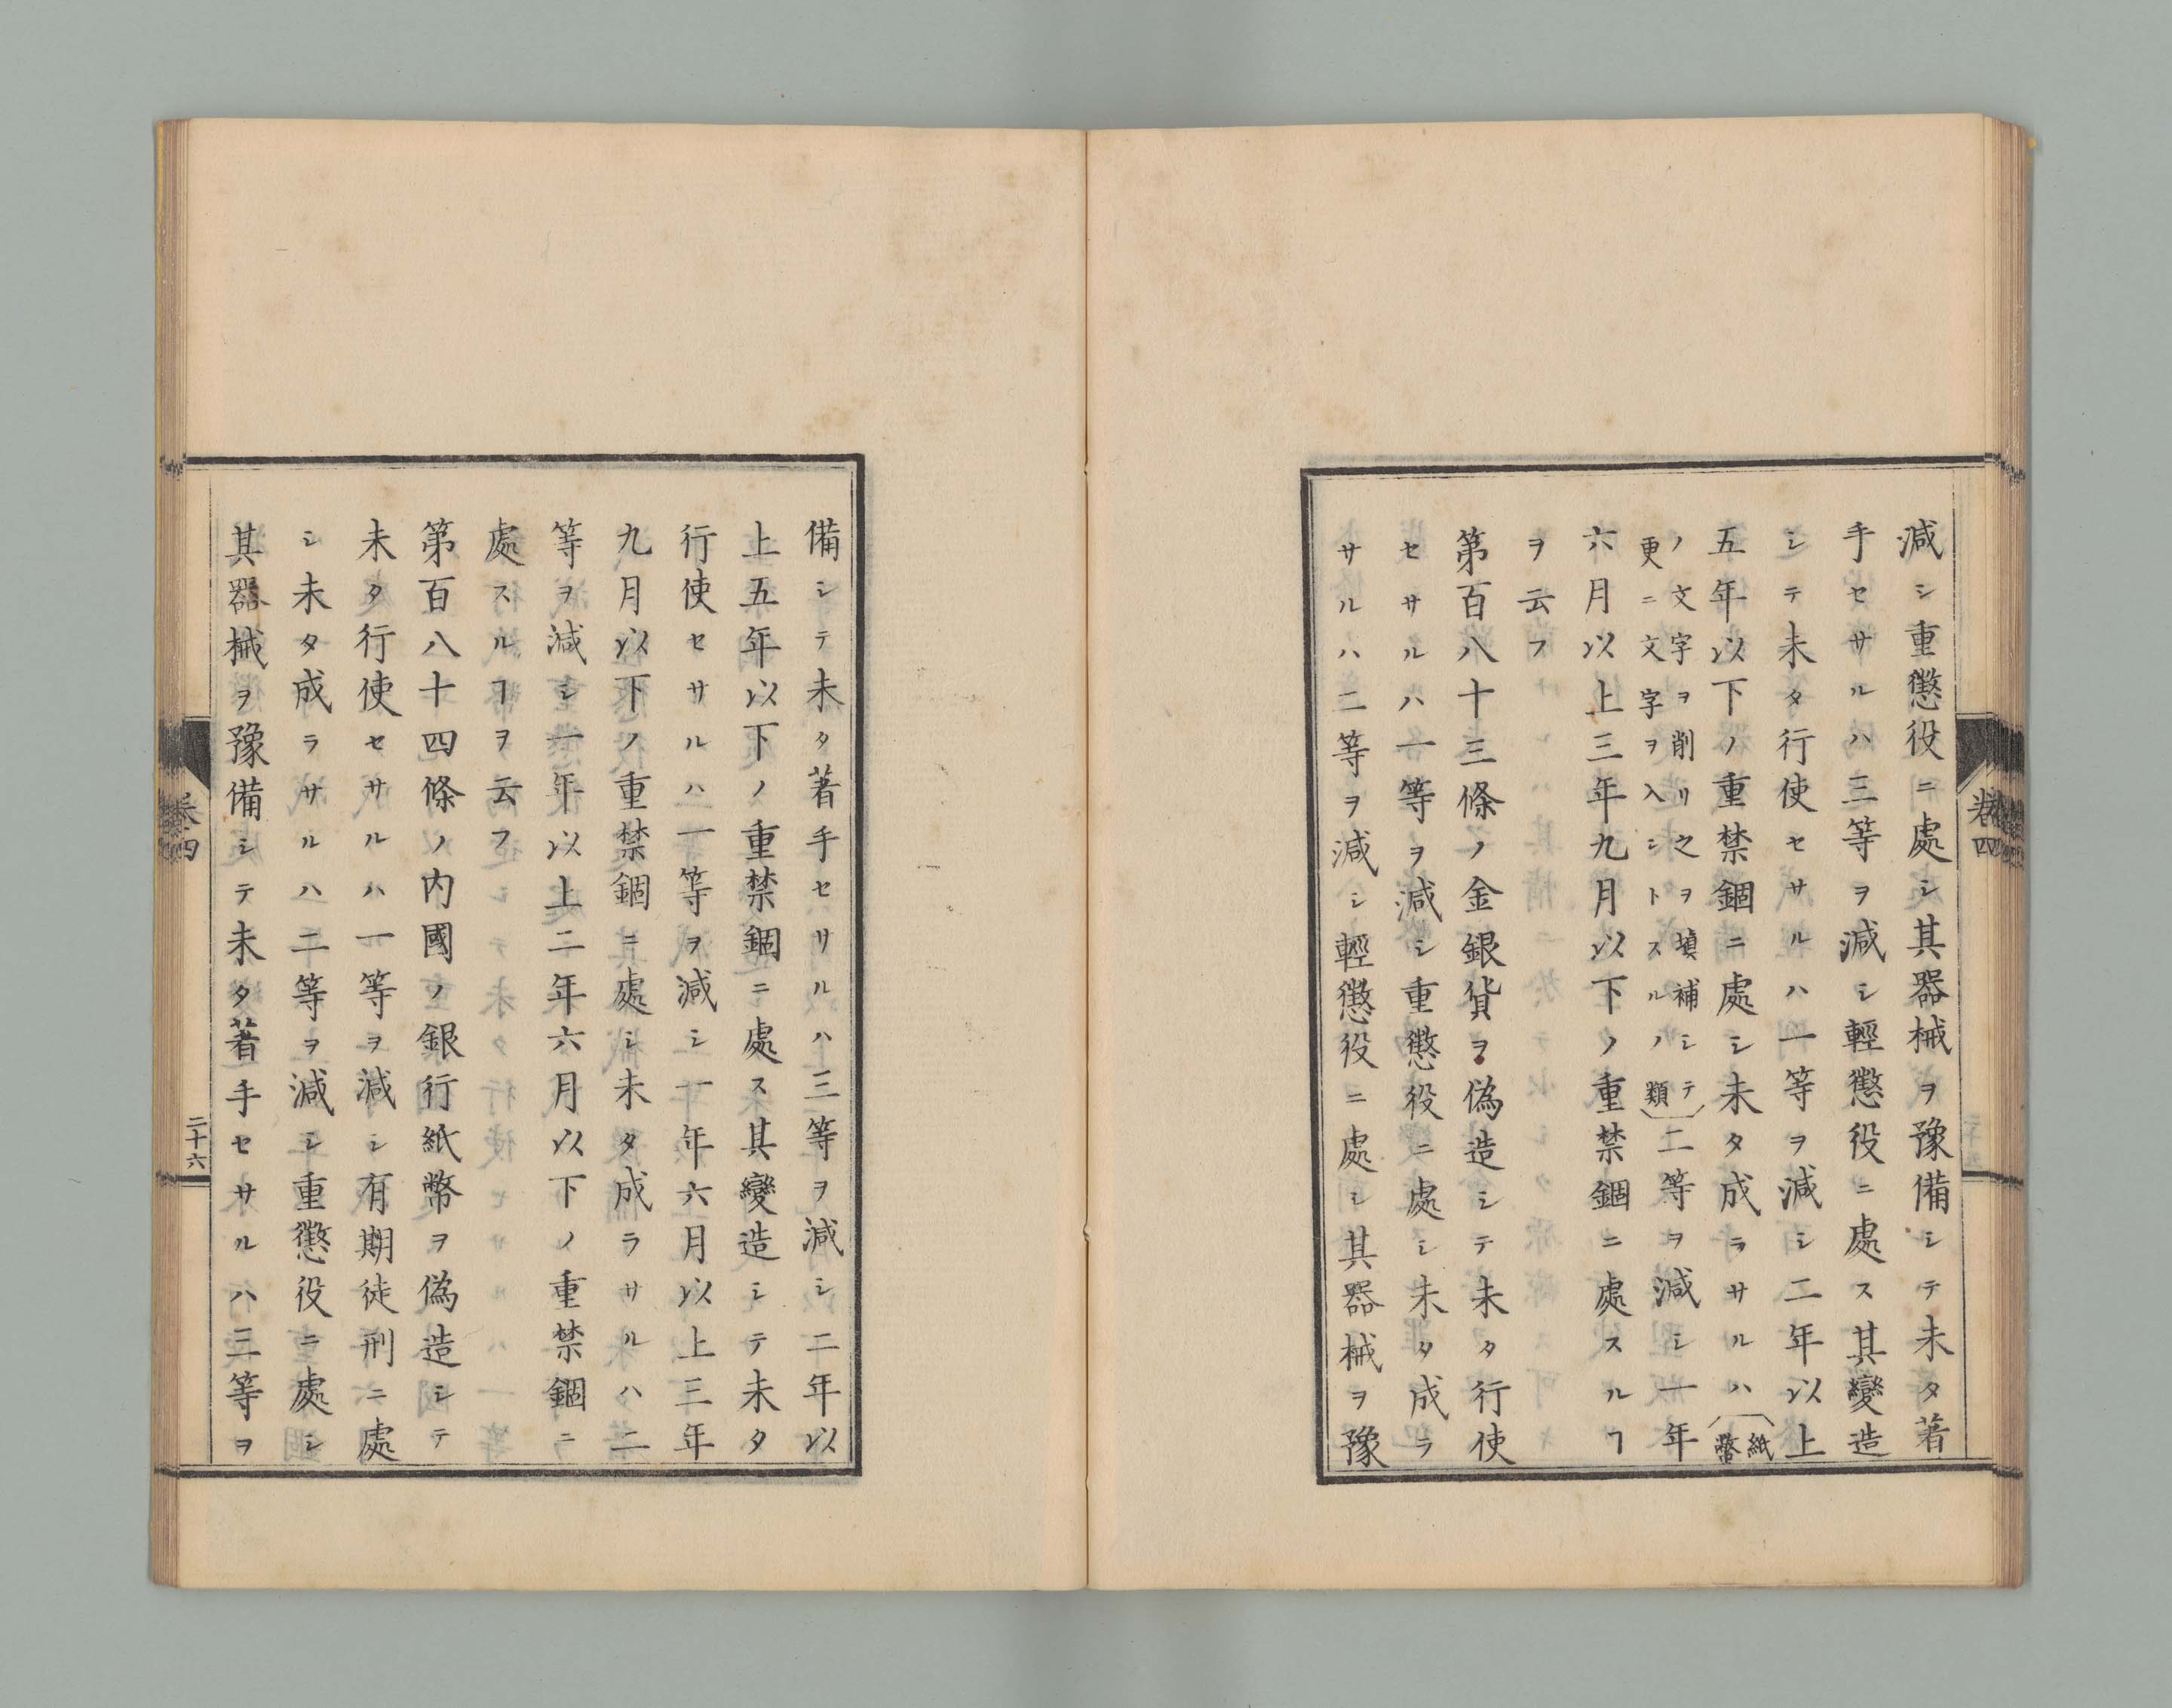 減シ重懲役ニ處シ其器械ヲ豫備シテ未タ著
手セサルハ三等ヲ減シ輕懲役ニ處ス其變造
シテ未タ行使セサルハ一等ヲ減シ二年以上
五年以下ノ重禁錮ニ處シ未タ成ラサルハ（紙幣
ノ文字ヲ削リ之ヲ填補シテ
更ニ文字ヲ入シトスルノ類）二等ヲ減シ一年
六月以上三年九月以下ノ重禁錮ニ處スルヿ
ヲ云フ
第百八十三條ノ金銀貨ヲ偽造シテ未タ行使
セサルハ一等ヲ減シ重懲役ニ處シ未タ成ラ
サルハ二等ヲ減シ輕懲役ニ處シ其器械ヲ豫
卷四
備シテ未タ著手セサルハ三等ヲ減シ二年以
上五年以下ノ重禁錮ニ處ス其變造シテ未タ
行使セサルハ一等ヲ減シ一年六月以上三年
九月以下ノ重禁錮ニ處シ未タ成ラサルハ二
等ヲ減シ一年以上二年六月以下ノ重禁錮ニ
處スルヿヲ云フ
第百八十四條ノ内國ノ銀行紙幣ヲ偽造シテ
未タ行使セサルハ一等ヲ減シ有期徒刑ニ處
シ未タ成ラサルハ二等ヲ減シ重懲役ニ處シ
其器械ヲ豫備シテ未タ著手セサルハ三等ヲ
卷四
二十六